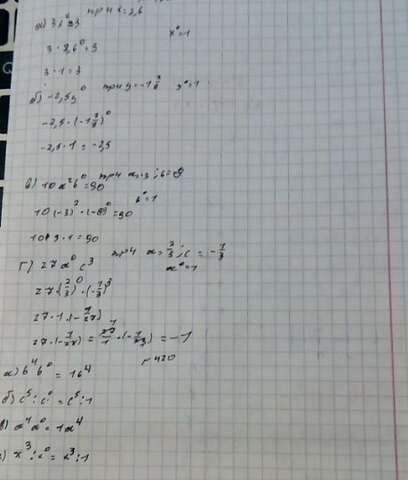 при b=2,6
а) 3b⁰=3 x⁰=1
3·2,6⁰=3
3·1=3
б) -2,5y⁰ при y=-1 3/8 y⁰=1
-2,5·(-1 3/8)⁰
-2,5·1=-2,5
в) 10a²b⁰=90 при a=-3; b=-8
b⁰=1
10(-3)²·(-8)⁰=90
10·9·1=90
г) 27a⁰c³ при a=2/3; c=-1/3
a⁰=1
27·(2/3)⁰·(-1/3)³
27·1·(-1/27)
27·(-1/27)=27/1·(-1/27)=-1
№420
а) b⁴b⁰=1b⁴
б) c⁵:c⁰=c⁵:1
в) a⁴a⁰=1a⁴
г) x³:x⁰=x³:1